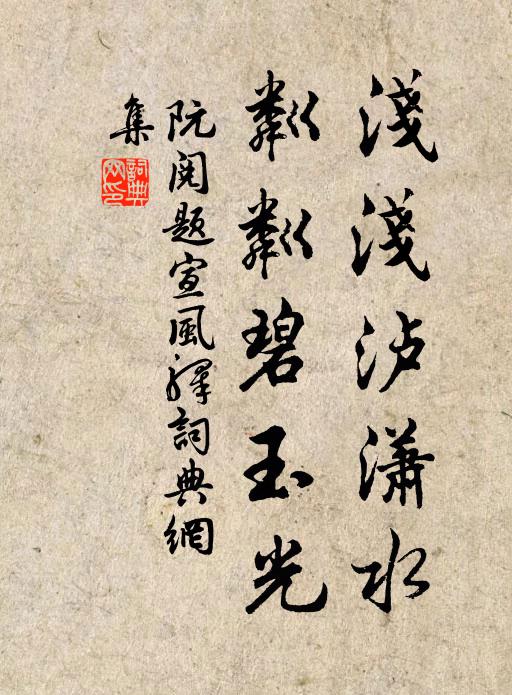 淺淺泸瀟水
粼粼碧玉光
阮閱题宣風驛詞典網
集
詞典网印